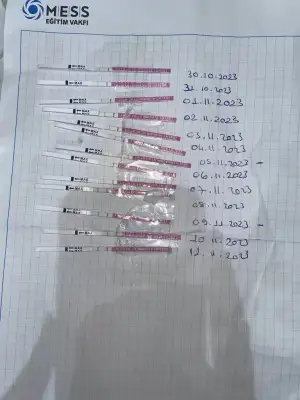 MESS
EĞİTİM VAKFI
30.10.2023
31.10.2023
01.11.2023
02.11.2023
03.11.2023
04.11.2023
05.11.2023 -
06.11.2023
07.11.2023
08.11.2023
09.11.2023 -
10.11.2023